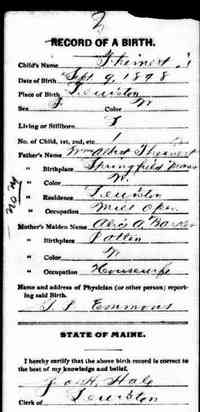 2
RECORD OF A BIRTH.
Child's Name
Date of Birth Sept 9, 1898
Place of Birth Lewiston
Sex F Color W
Living or Stillborn L
No. of Child, 1st, 2nd, etc. 1
Father's Name Wm Albert
" Birthplace Springfield Mass
" Color W
" Residence Lewiston
" Occupation Mill Ope.
Mother's Maiden Name Alice A.
" Birthplace Patten
" Color W
" Occupation Housewife
Name and address of Physician (or other person) report-
ing said Birth.
Emmons
STATE OF MAINE.
I hereby certify that the above birth record is correct to
the best of my knowledge and belief.
Hale
Clerk of Lewiston